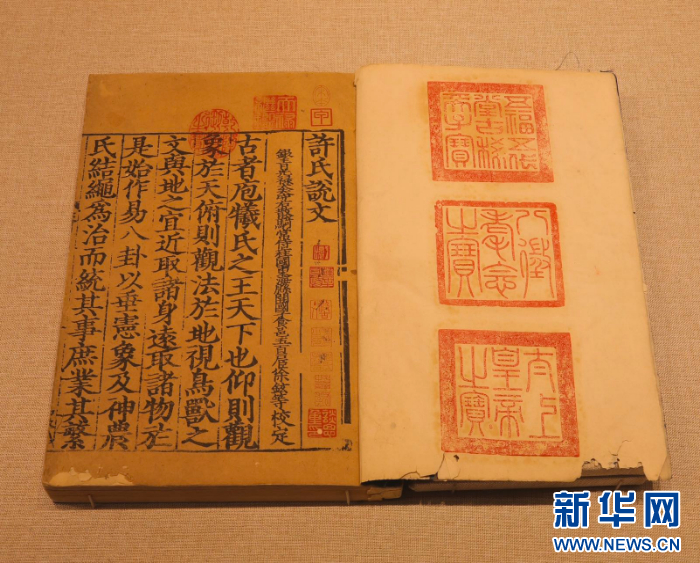 五福五代
堂古稀
天子寶
八徵
耄念
之寶
太上
皇帝
之寶
許氏說文
騎常侍上柱國東海縣開國子食邑五百戶臣徐鉉等校定
古者庖犧氏之王天下也仰則觀
象於天俯則觀法於地視鳥獸之
文與地之宜近取諸身遠取諸物於
是始作易八卦以垂憲象及神農
氏結繩爲治而統其事庶業其繁
新华网
WWW.NEWS.CN